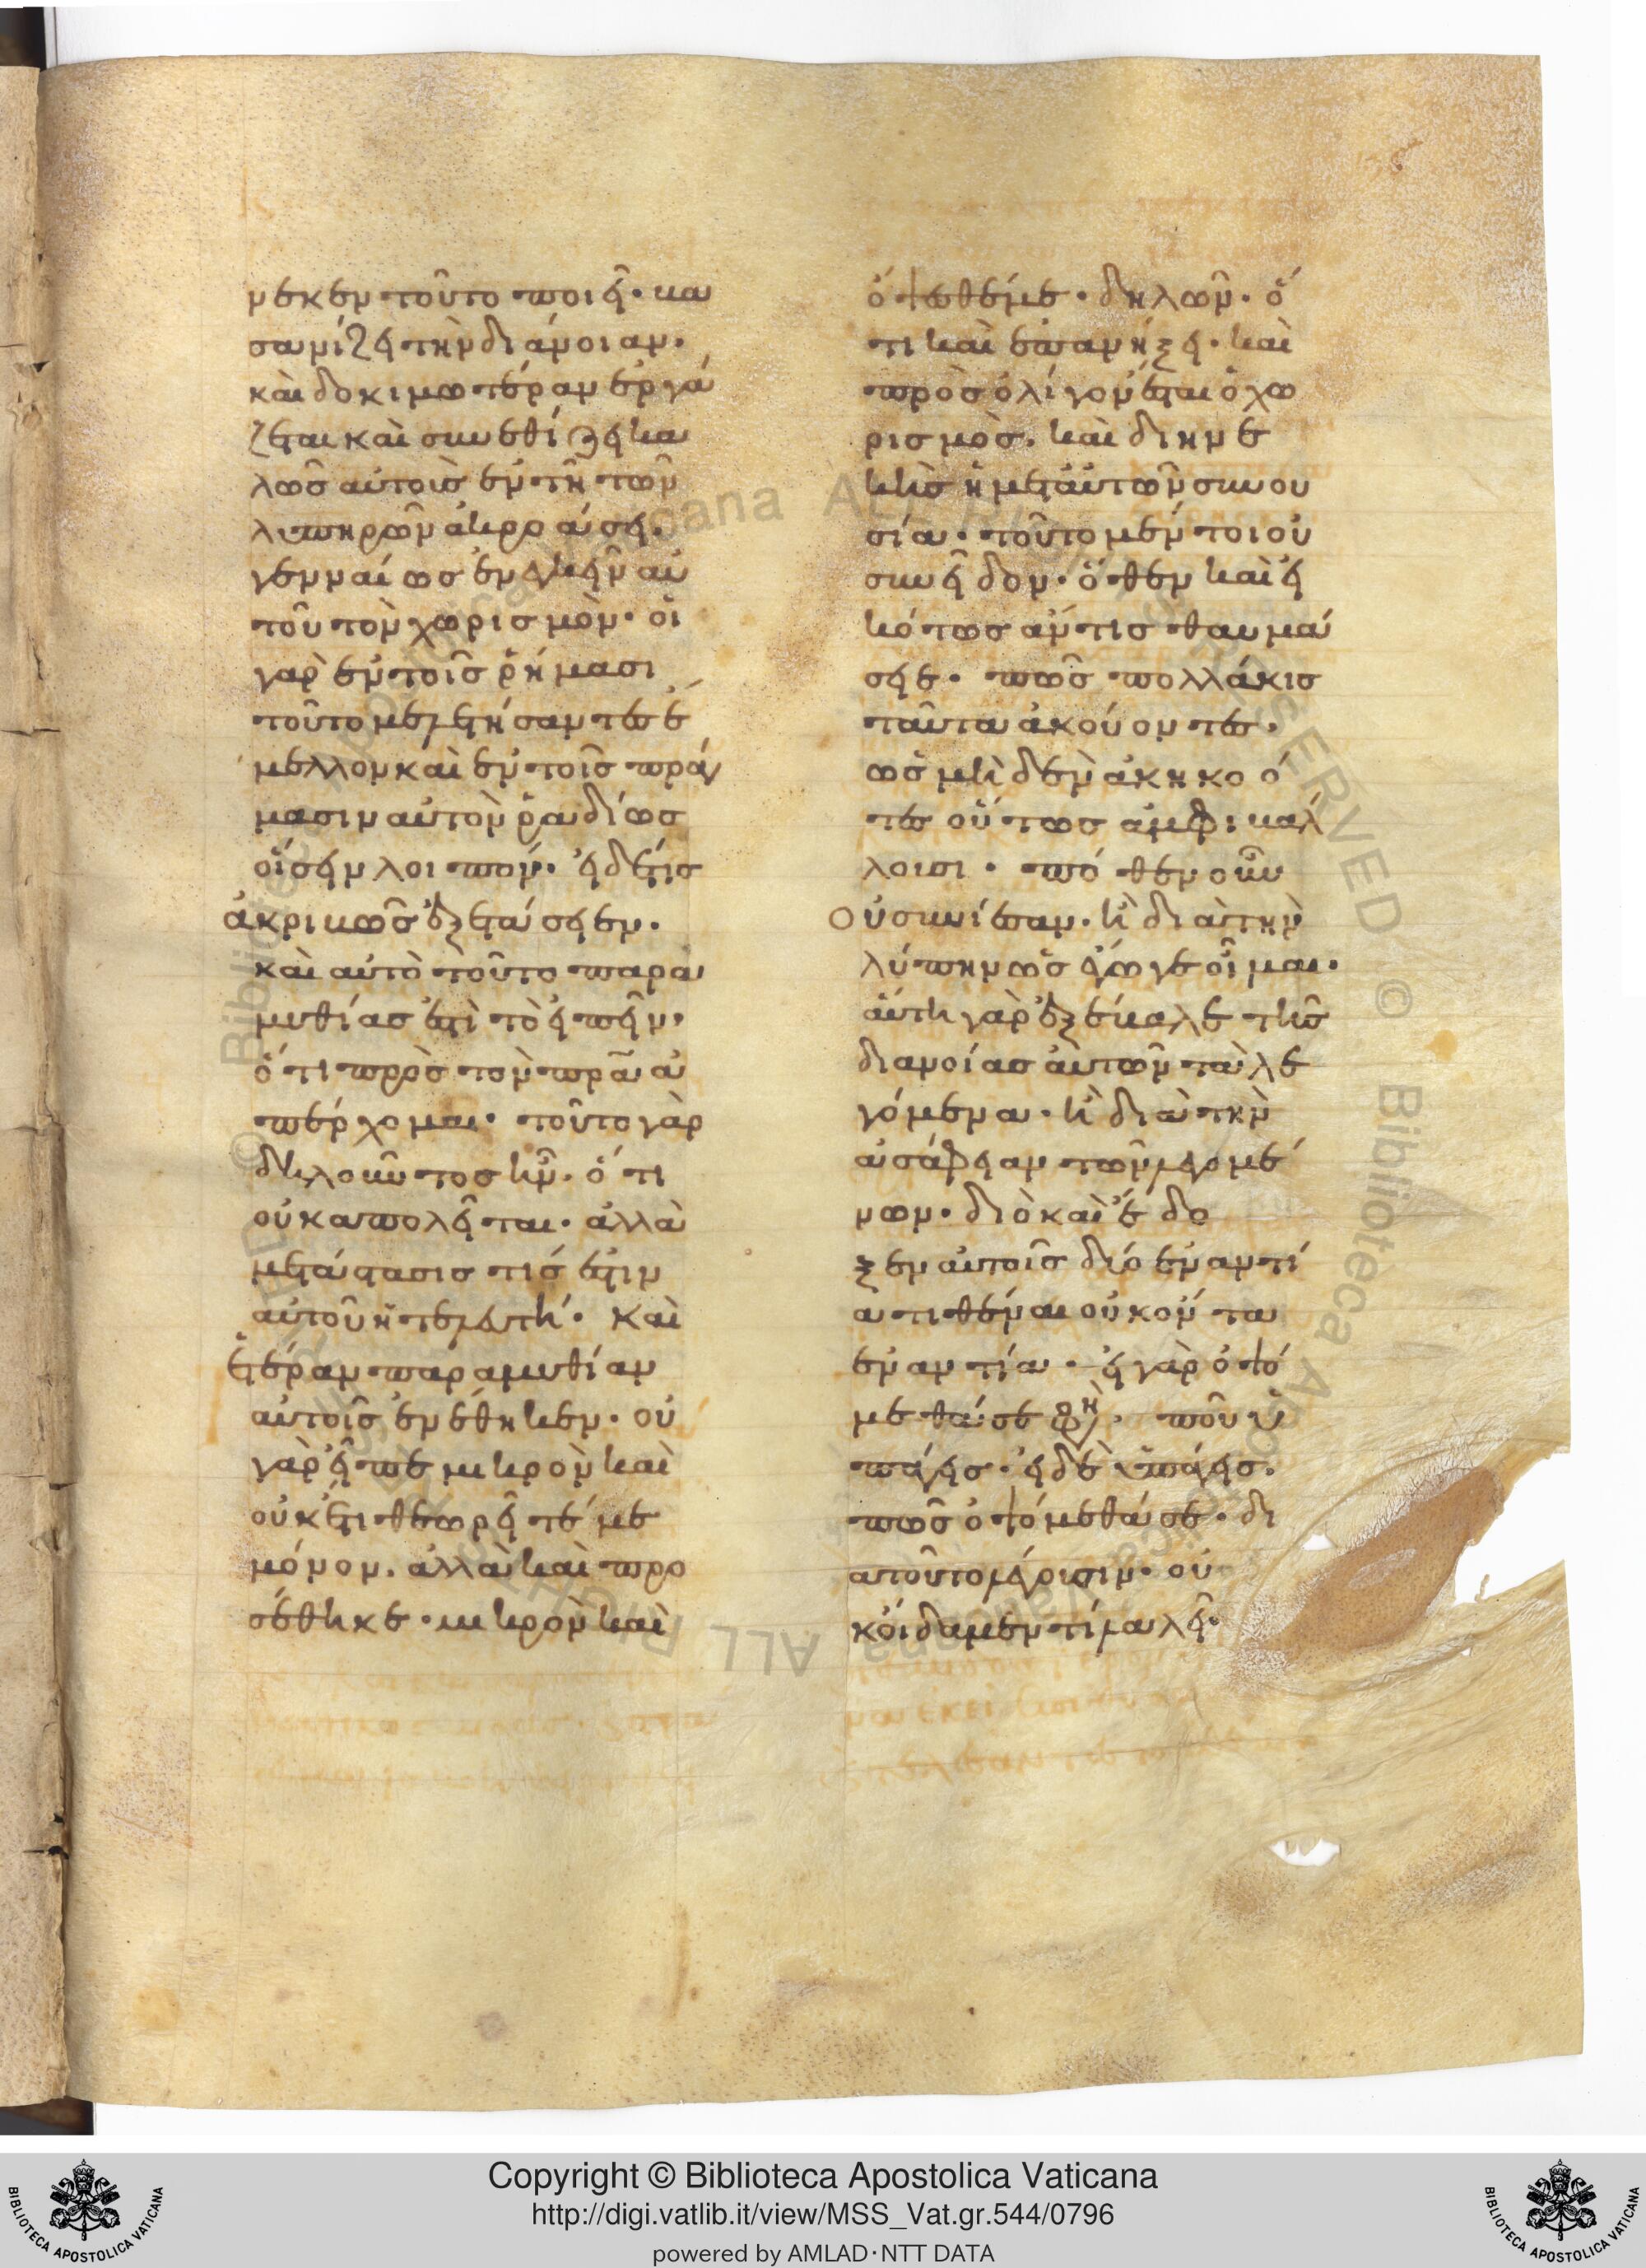 νεκεν τοῦτο ποιεῖ· βα
σανίζει τὴν διάνοιαν·
καὶ δοκιμωτέραν ἐργά
ζεται καὶ συνεθίζει κα
λῶς αὐτοὺς ἐν τῇ τῶν
λυπηρῶν ἀκροάσει·
γενναίως ἐνεγκεῖν αὐ
τοῦ τὸν χωρισμὸν· οἱ
γὰρ ἐν τοῖς ῥήμασι
τοῦτο μελετήσαντες ἔ
μελλον καὶ ἐν τοῖς πράγ
μασιν αὐτὸν ῥαδίως
οἴσειν λοιπόν· εἰ δέ τις
ἀκριβῶς ἐξετάσειεν·
καὶ αὐτὸ τοῦτο παρα
μυθίας ἐστὶ τὸ εἰπεῖν·
ὅτι πρὸς τὸν πρα ἀ
πέρχομαι· τοῦτο γὰρ
δηλοῦντος ἦν· ὅτι
οὐκ ἀπολεῖται· ἀλλὰ
μετάστασις τίς ἐστιν
αὐτοῦ ἡ τελευτή· καὶ
ἑτέραν παραμυθίαν
αὐτοῖς ἐνέθηκεν· οὐ
γὰρ εἶπε μικρὸν καὶ
οὐκ ἔτι θεωρεῖτέ με
μόνον· ἀλλὰ καὶ προ
σέθηκε· μικρὸν καὶ
ὄψεσθέ με· δηλῶν· ὅ
τι καὶ ἐπανήξει· καὶ
πρὸς ὀλίγον ἔσται ὁ χω
ρισμὸς· καὶ διηνε
κὴς ἡ μετ' αὐτῶν συνου
σία· τοῦτο μέντοι οὐ
συνεῖδον· ὅθεν καὶ εἰ
κότως ἄν τις θαυμά
σειε· πῶς πολλάκις
ταῦτα ἀκούοντες·
ὡς μὴ δὲν ἀκηκοό
τες οὕτως ἀμφιβάλ
λουσι· πόθεν οὖν
οὐ συνίεσαν· ἢ διὰ τὴν
λύπην ὡς ἔγωγε οἶμαι·
αὕτη γὰρ ἐξέβαλε τῆς
διανοίας αὐτῶν τὰ λε
γόμενα· ἢ διὰ τὴν
ἀσάφειαν τῶν εἰρημέ
νων· διὸ καὶ ἔδο
ξεν αὐτοῖς δύο ἐναντί
α τιθέναι οὐκ ὄντα
ἐναντία· εἰ γὰρ ὀψό
μεθά σε φη· ποῦ ὑ
πάγεις· εἰ δὲ ὑπάγεις·
πῶς ὀψόμεθά σε· δι
ὰ τοῦτο λέγουσιν· οὐ
κ οἴδαμεν τί λαλεῖ·
Copyright © Biblioteca Apostolica Vaticana
http://digi.vatlib.it/view/MSS_Vat.gr.544/0796
powered by AMLAD·NTT DATA